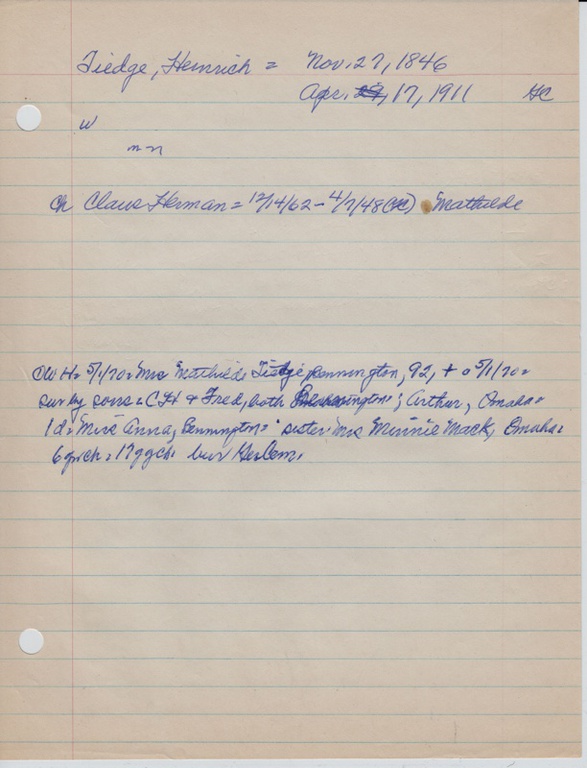 Tiedge, Heinrich = Nov. 27, 1846
Apr. 17, 1911 HC
w
nn
Ch Claus Herman = 12/14/62 - 4/7/48 (HC) Mathilde
OWH = 5/1/70 = Mrs Mathilde Tiedge, Bennington, 92, + a 5/1/70 =
sur by sons = CH & Fred, both Bennington = ; Arthur, Omaha =
1d = Miss Anna, Bennington = sister Mrs Minnie Mack, Omaha =
6 grch = 17 ggch. bur